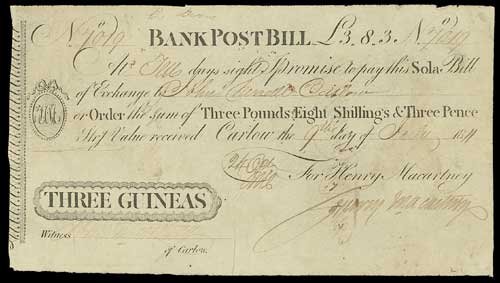 No. 7019 BANK POST BILL £3.8.3. No. 7019
At Ten days sight I promise to pay this Sola Bill
of Exchange to John
or Order the Sum of Three Pounds Eight Shillings & Three Pence
Value received Carlow the 9th day of
For Henry Macartney
Henry Macartney
THREE GUINEAS
Witness
of Carlow.